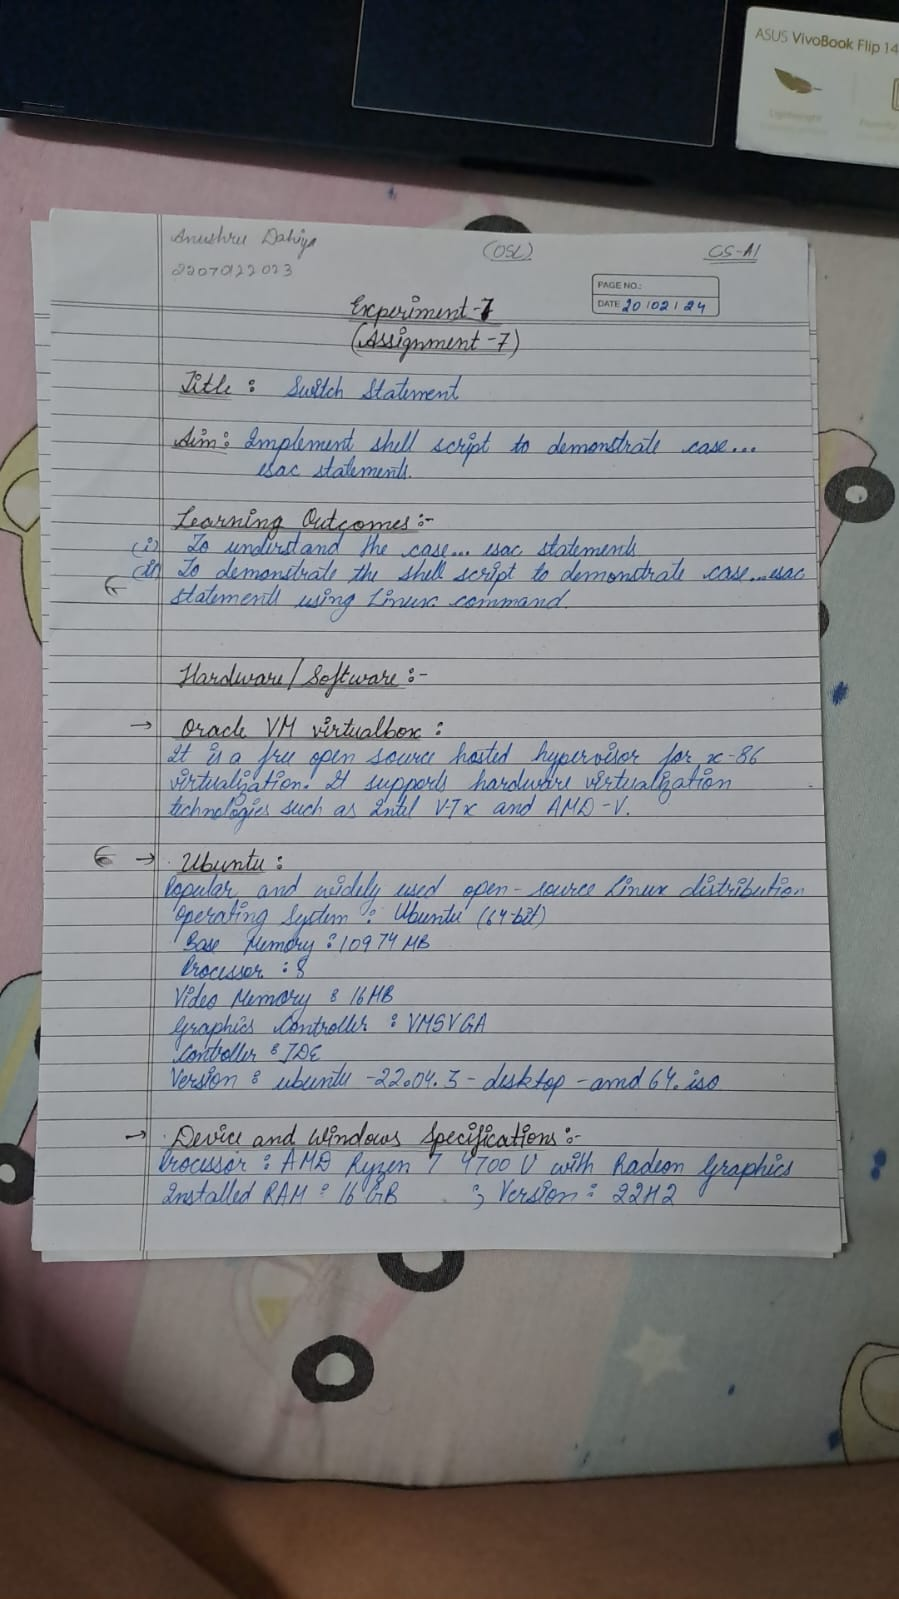 ASUS VivoBook Flip 14
Lightweight
Anushree Dahiya
(OSL)
CS-A1
PAGE NO.:
DATE 20/02/24
Experiment-7
(Assignment-7)
Title: Switch Statement
Aim: Implement shell script to demonstrate case...
esac statements.
Learning Outcomes:-
(i) To understand the case... esac statements
(ii) To demonstrate the shell script to demonstrate case...esac
statements using Linux command.
Hardware/Software:-
→ Oracle VM virtualbox:
It is a free open source hosted hypervisor for x-86
virtualization. It supports hardware virtualization
technologies such as Intel VTx and AMD-V.
→ Ubuntu:
Popular and widely used open-source Linux distribution
Operating System: Ubuntu (64-bit)
Base Memory: 10974 MB
Processor: 8
Video Memory: 16MB
Graphics Controller: VMSVGA
Controller: IDE
Version: ubuntu-22.04.3-desktop-amd64.iso
→ Device and Windows Specifications:-
Processor: AMD Ryzen 7 4700 U with Radeon Graphics
Installed RAM: 16 GB ; Version: 22H2